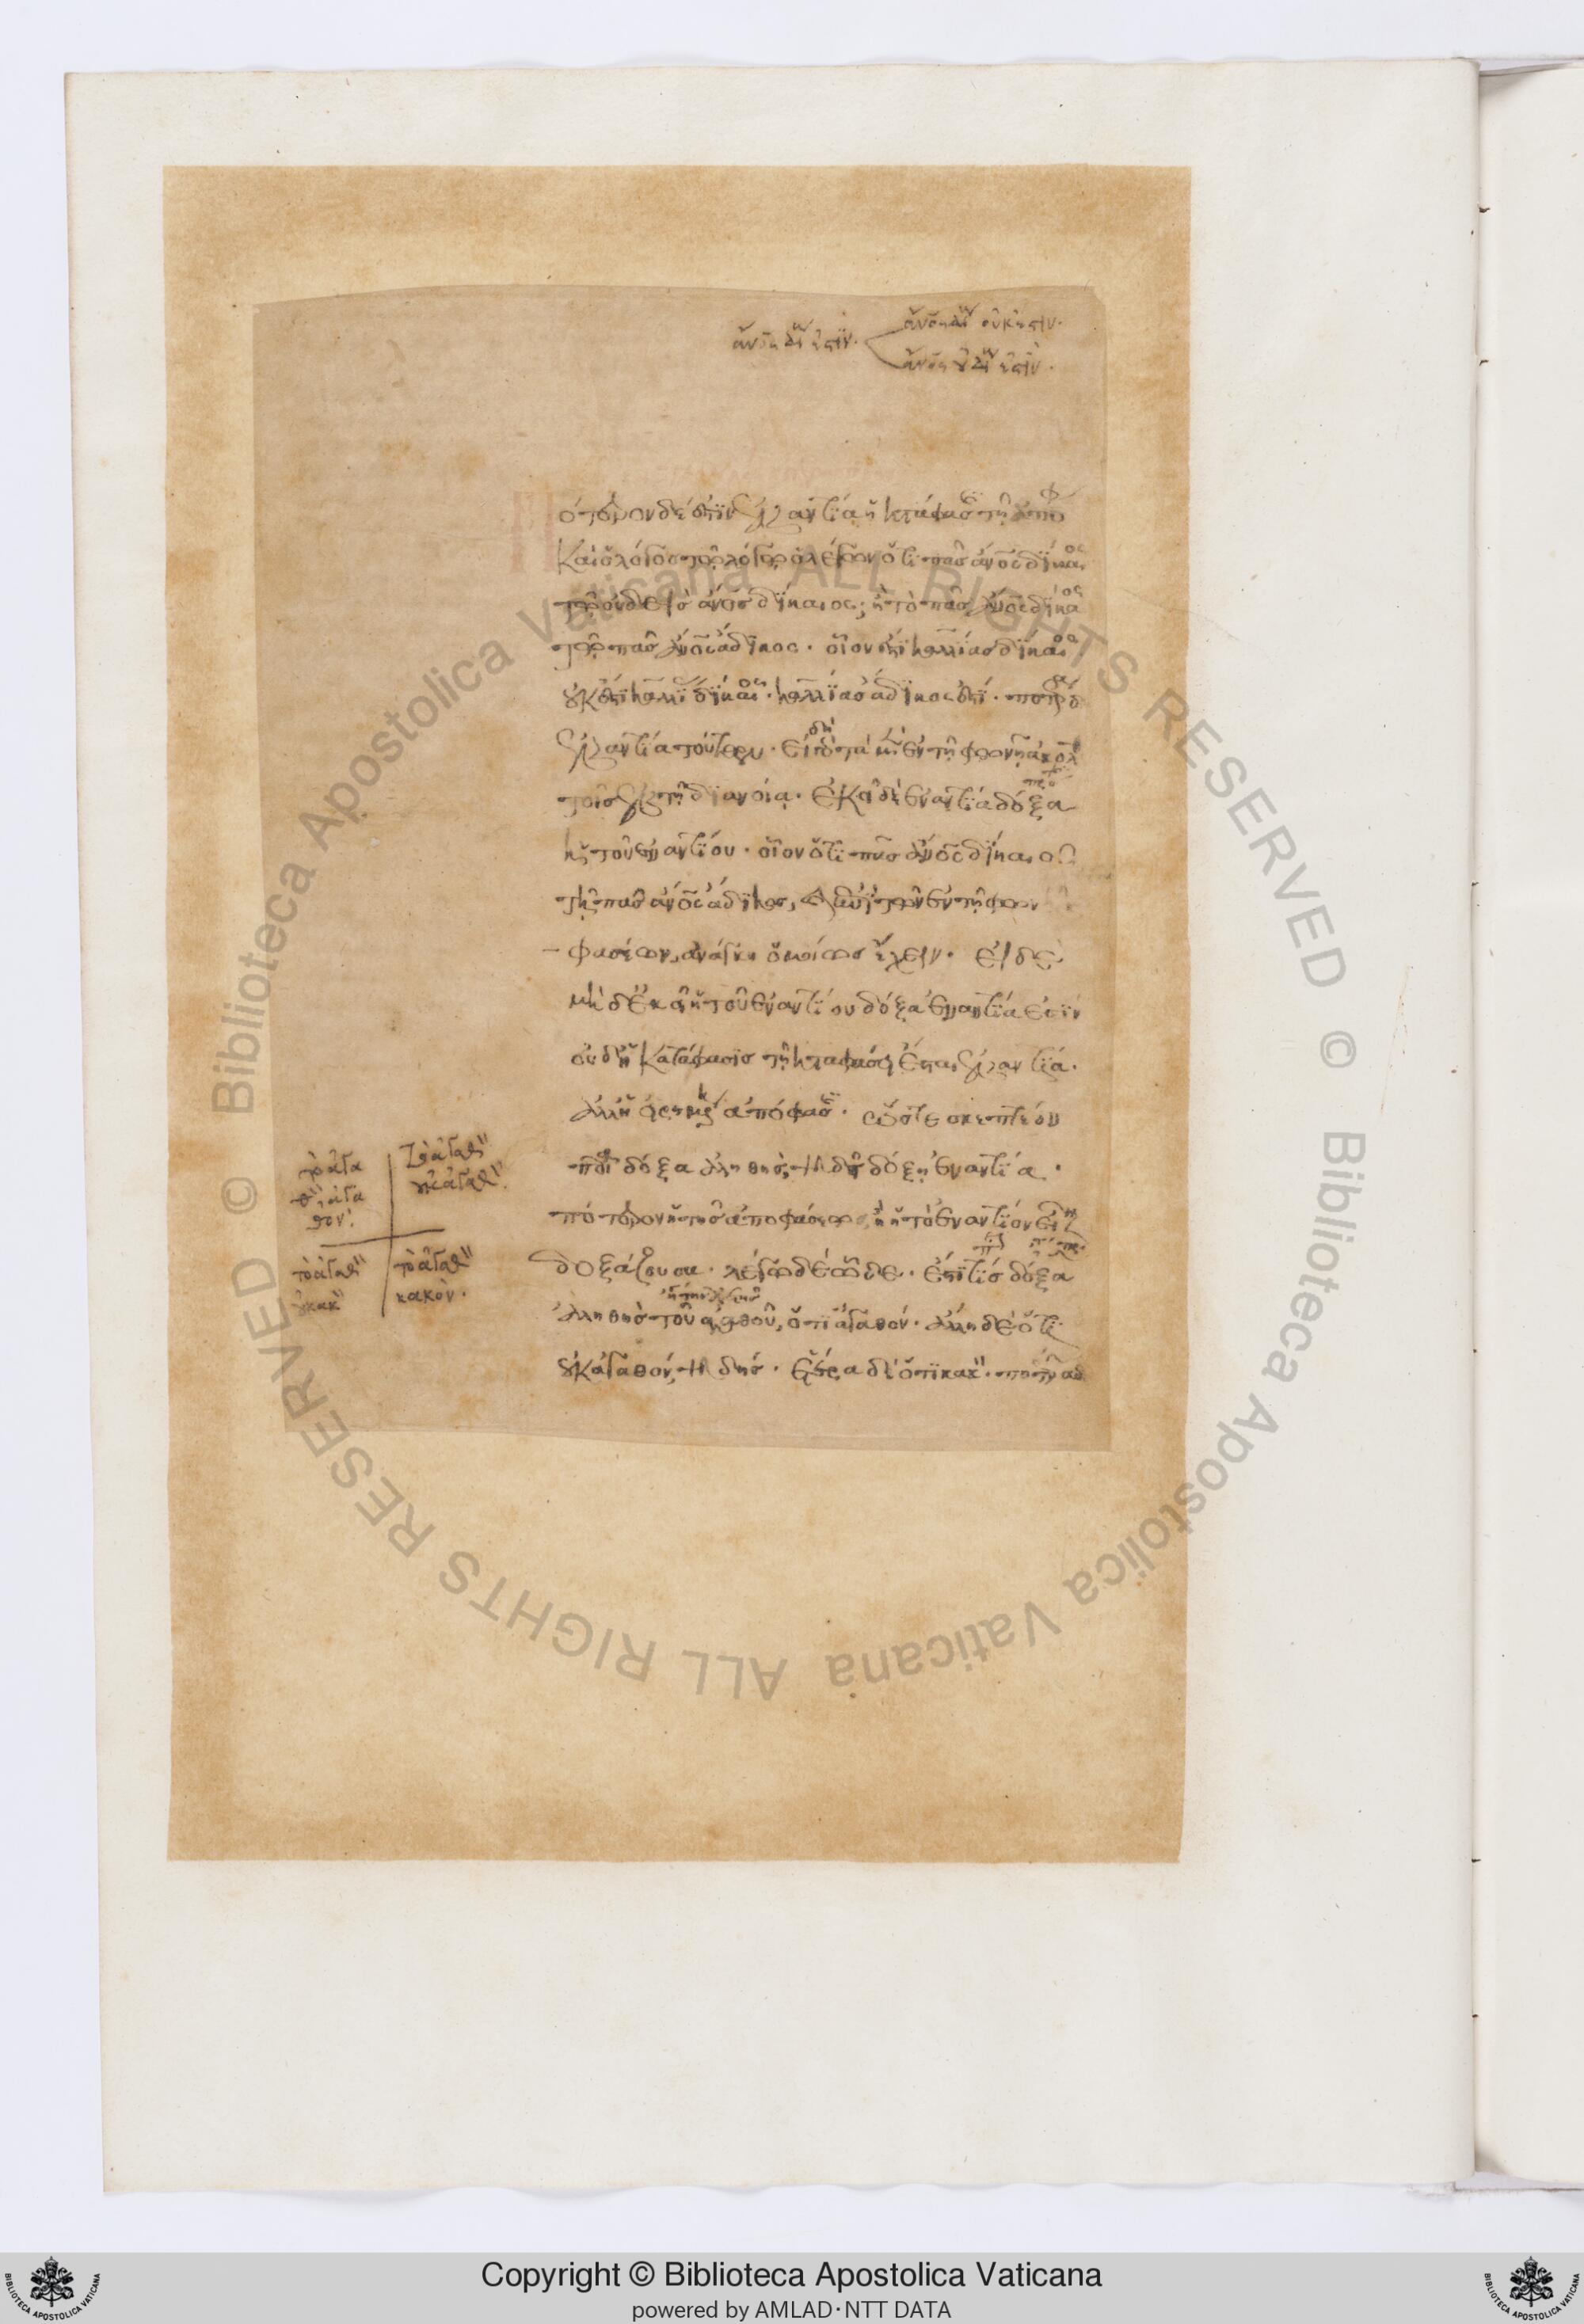 ότερον δέ ἐστιν ἐναντία ἡ κατάφασις τῇ ἀποφ
καὶ ὁ λόγος τῷ λόγῳ ὁ λέγων ὅτι πᾶς ἄνος δίκαιος
τῷ οὐδεὶς ἄνος δίκαιος; ἢ τὸ πᾶς ἄνος δίκαιος
τῷ πᾶς ἄνος ἄδικος. οἷον ἔστι καλλίας δίκαιος
οὐκ ἔστι καλλίας δίκαιος. καλλίας ἄδικός ἐστι. ποτέρα δ
ἐναντία τούτων. εἰ γὰρ τὰ μὲν ἐν τῇ φωνῇ ἀκολ
τοῖς ἐν τῇ διανοίᾳ. ἐκεῖ δὲ ἐναντία δόξα
ἡ τοῦ ἐναντίου. οἷον ὅτι πᾶς ἄνος δίκαιος
τῇ πᾶς ἄνος ἄδικος, καὶ ἐπὶ τῶν ἐν τῇ φων
φασέων, ἀνάγκη ὁμοίως ἔχειν. εἰ δὲ
μὴ δὲ ἐκεῖ ἡ τοῦ ἐναντίου δόξα ἐναντία ἐστίν
οὐδ' ἡ κατάφασις τῇ καταφάσει ἔσται ἐναντία.
ἀλλ' ἡ εἰρημένη ἀπόφασις. ὥστε σκεπτέον
ποία δόξα ἀληθὴς, ψευδεῖ δόξῃ ἐναντία.
πότερον ἡ τῆς ἀποφάσεως, ἢ ἡ τὸ ἐναντίον εἶναι
δοξάζουσα. λέγω δὲ ὧδε. ἔστι τις δόξα
ἀληθὴς τοῦ ἀγαθοῦ, ὅτι ἀγαθόν. ἄλλη δὲ ὅτι
οὐκ ἀγαθόν, ψευδής. ἑτέρα δὲ ὅτι κακόν. ποτέρα
τὸ ἀγα
θὸν ἀγα
θόν.
τὸ ἀγαθὸν
οὐκ ἀγαθόν.
τὸ ἀγαθὸν
οὐ κακόν
τὸ ἀγαθὸν
κακόν.
Copyright © Biblioteca Apostolica Vaticana
powered by AMLAD·NTT DATA
© Biblioteca Apostolica Vaticana ALL RIGHTS RESERVED
© Biblioteca Apostolica Vaticana ALL RIGHTS RESERVED
BIBLIOTECA APOSTOLICA VATICANA
BIBLIOTECA APOSTOLICA VATICANA